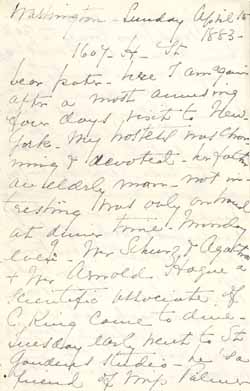 Washington - Sunday April 15
1883 -
1607 - H - St
Dear pater - here I am again
after a most amusing
four days visit to New
York. My hostess was char
ming & devoted - her father
an elderly man - not in-
teresting was only on hand
at dinner time - Monday
eveg. Mr Schurz & Agatha
& Mr Arnold Hague a
scientific associate of
C. King came to dine -
Tuesday early went to St
Gaudens studio - he is a
friend of Mrs. Palmer